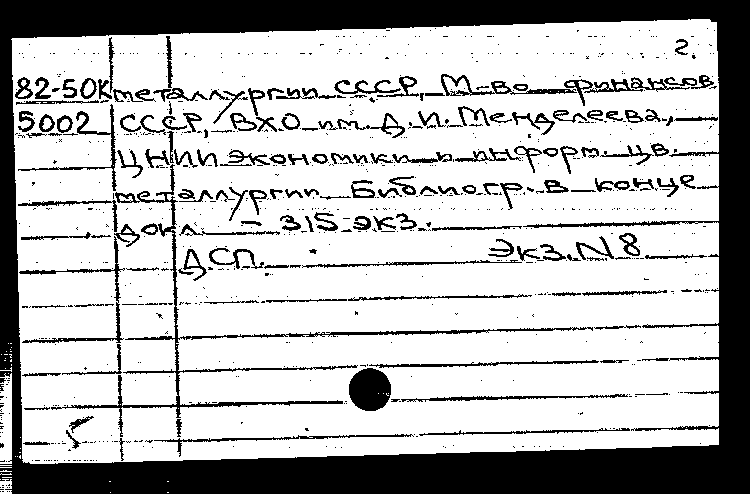 2.
82-50К металлургии СССР, М-во финансов
5002 СССР, ВХО им. Д.И. Менделеева,
ЦНИИ экономики и информ. цв.
металлургии. Библиогр. в конце
докл. – 315 экз.
ДСП. Экз. N 8